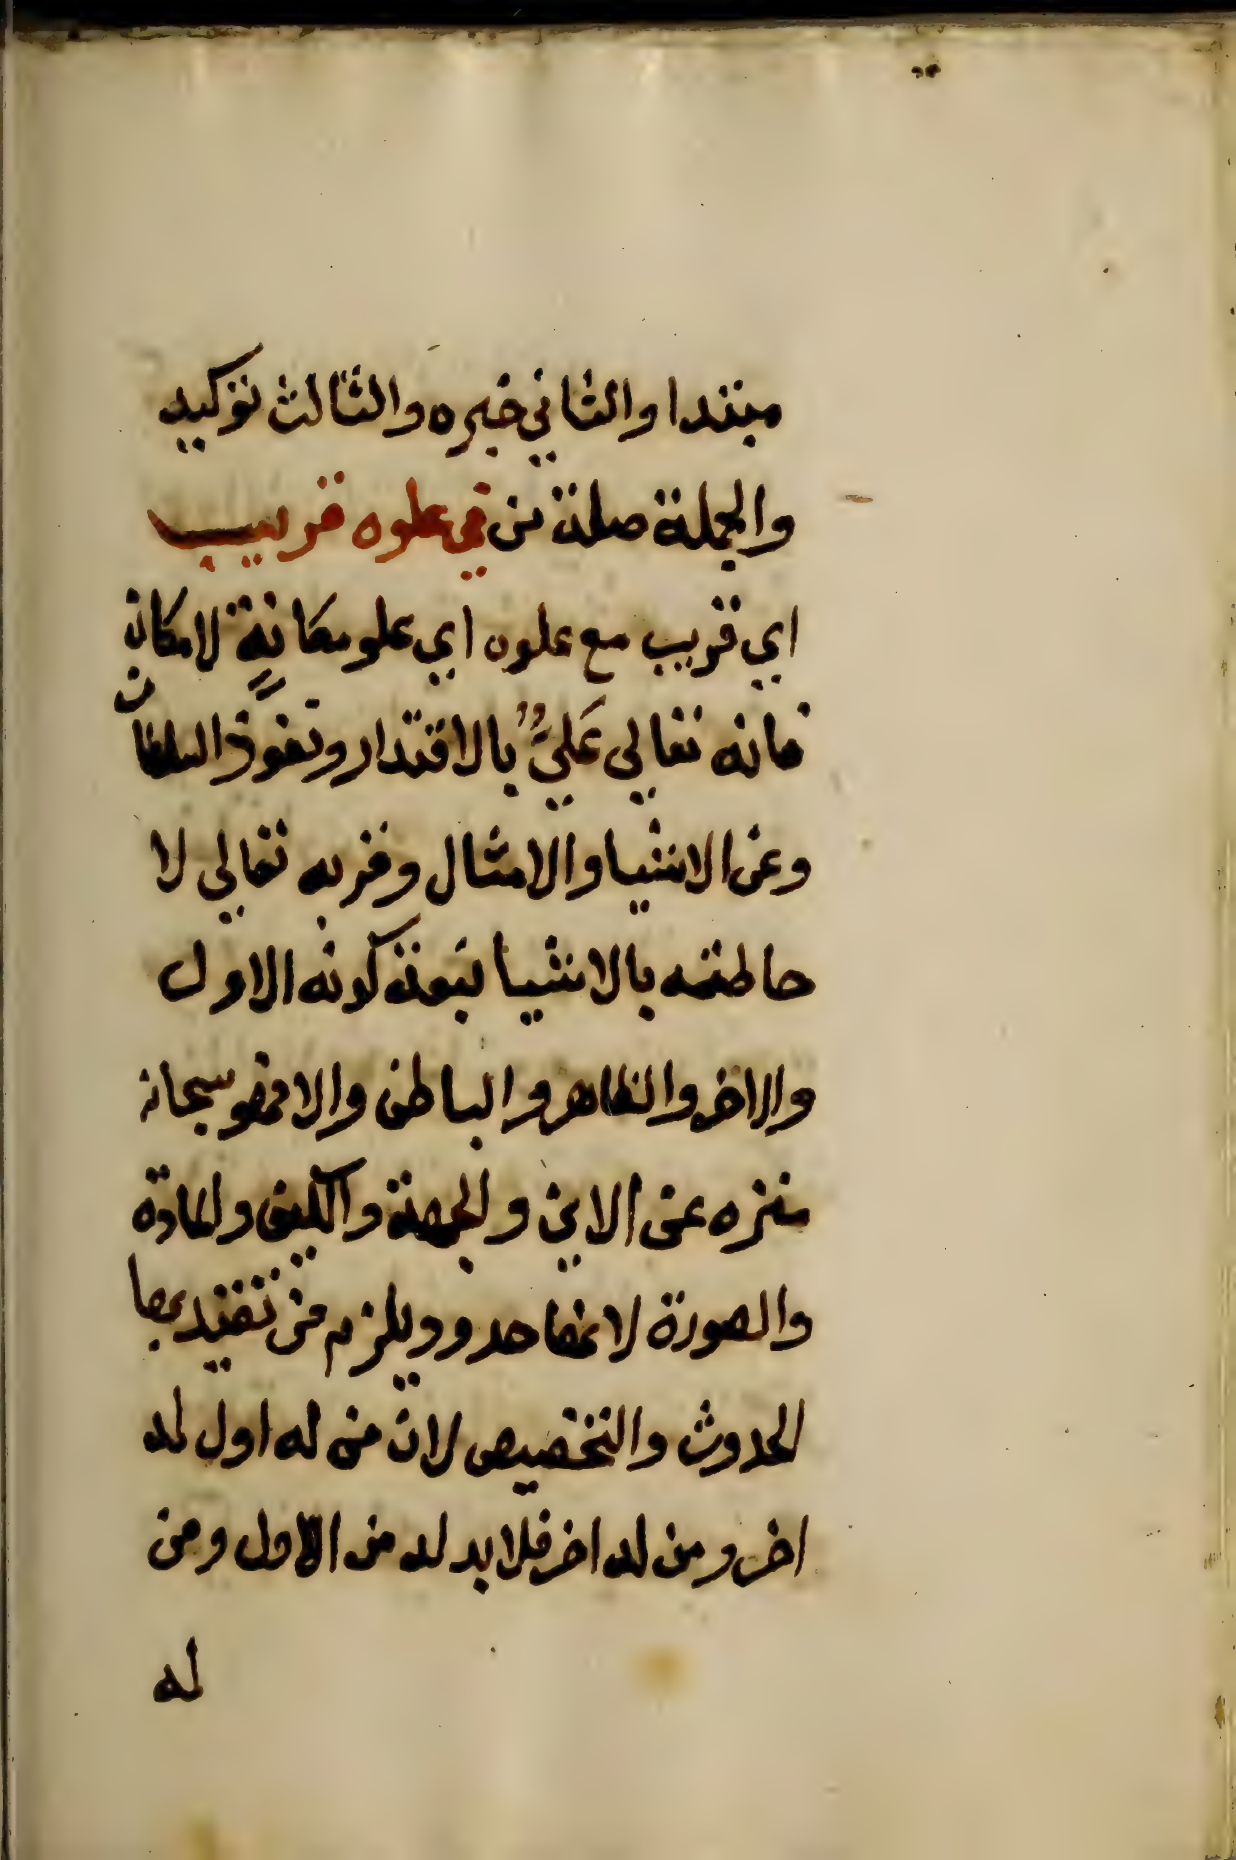 مبتدا والثاني خبره والثالث توكيد
والجملة صلة من في علوه قريب
اي قريب مع علوه اي علو مكانةٍ لا مكان
فانه تعالي عَليٌّ بالاقتدار ونفوذ السلطان
وعن الاشيا والامثال وقربه تعالي لا
حاطته بالاشيا كونه الاول
والاخر والظاهر والباطن والا فهو سبحانه
منزه عن الاين والجهة والكيف والمادة
والصورة لانها حدود ويلزم من تقيد بها
الحدوث والتخصيص لان من له اول له
اخر ومن له اخر فلا بد له من الاول ومن
له